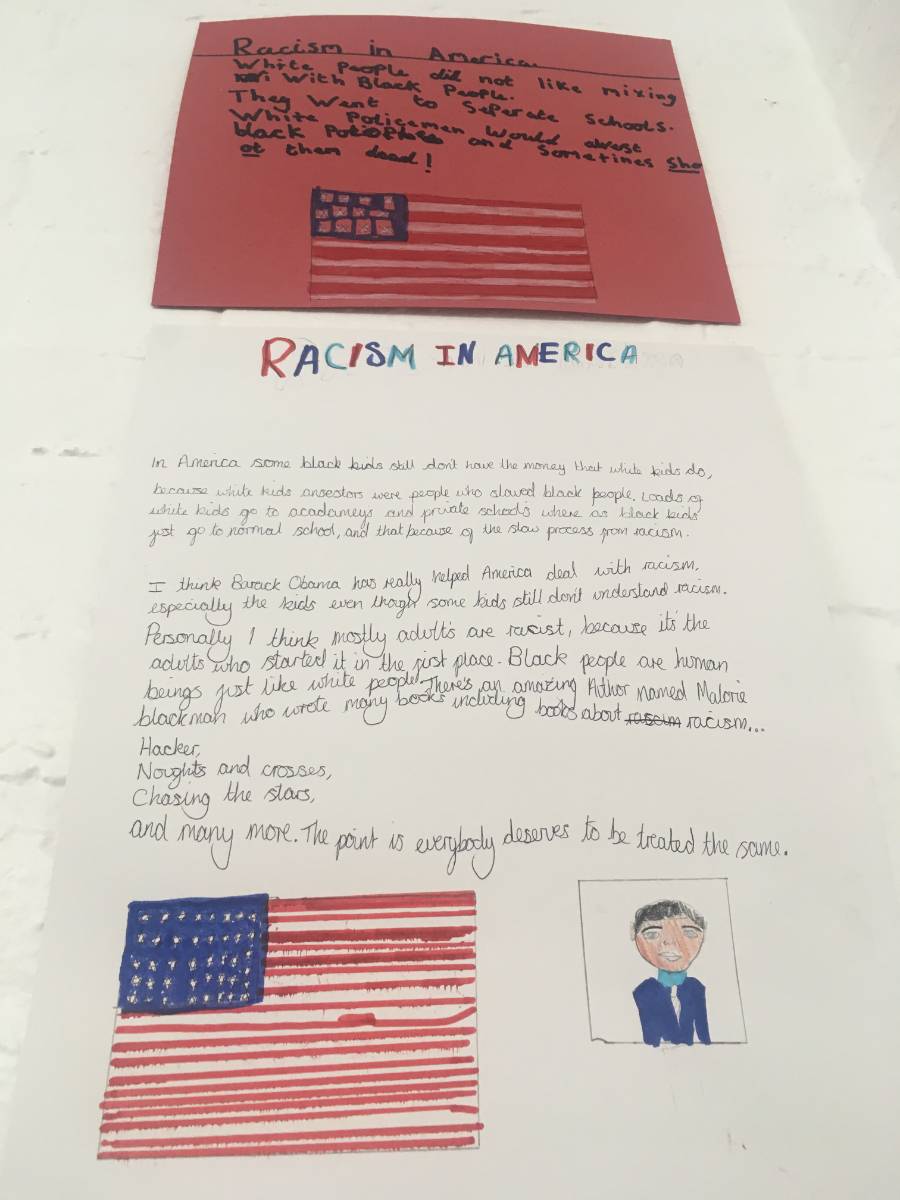 Racism in America
White People did not like mixing
With Black People.
They Went to Seperate Schools.
White Policemen Would arest
black and Sometimes sho
ot them dead!
RACISM IN AMERICA
In America some black kids still don't have the money that white kids do,
because white kids ansestors were people who slaved black people. Loads of
white kids go to acadameys and private school's where as black kids
just go to normal school, and that because of the slow process from racism.
I think Barack Obama has really helped America deal with racism.
especially the kids even though some kids still don't understand racism.
Personally I think mostly adult's are racist, because it's the
adults who started it in the first place. Black people are human
beings just like white people. There's an amazing Author named Malorie
blackman who wrote many books including books about racism...
Hacker,
Noughts and crosses,
Chasing the stars,
and many more. The point is everybody deserves to be treated the same.